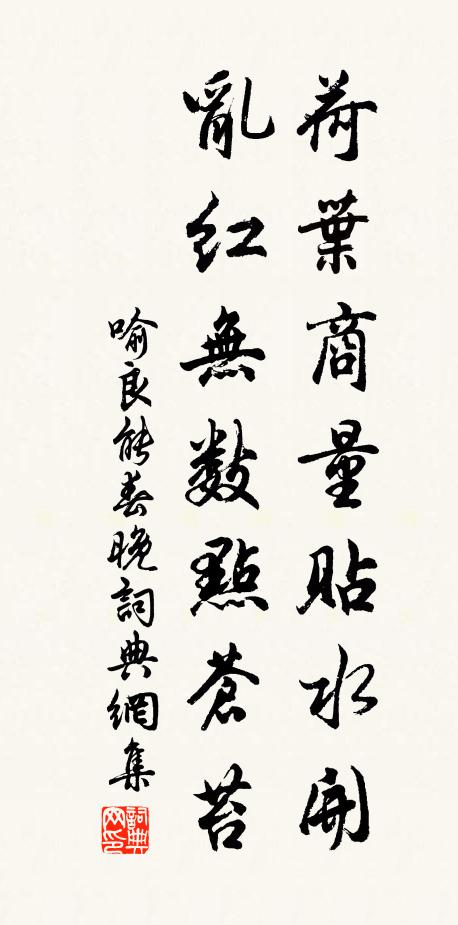 荷葉商量貼水開
亂紅無數點蒼苔
喻良能春晚詞典網集
詞典網印